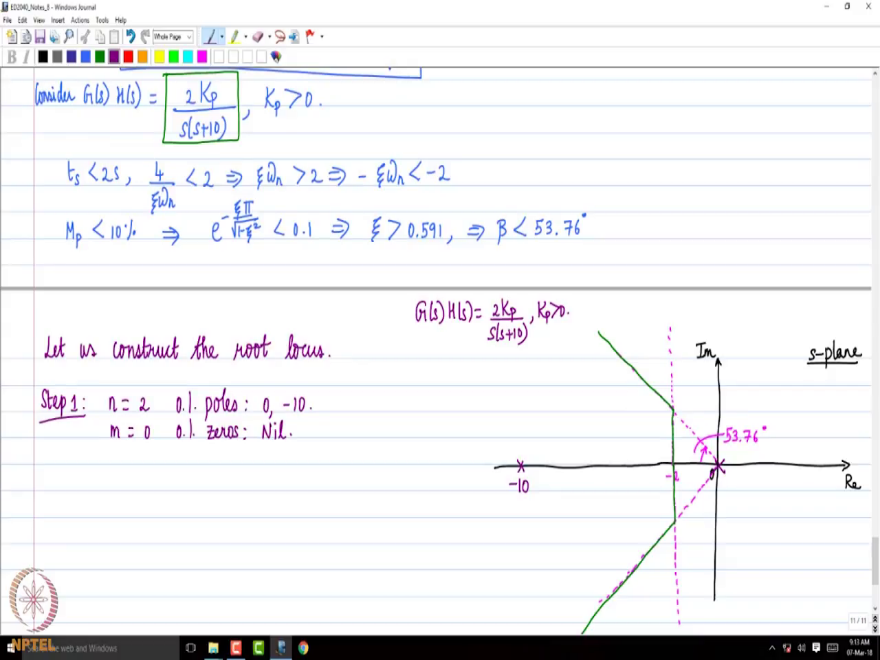 ED2040_Notes_8 - Windows Journal
File Edit View Insert Actions Tools Help
Whole Page
B I
Consider G(s) H(s) = 2Kp / s(s+10) , Kp > 0.
ts < 2s, 4/ξωn < 2 ⇒ ξωn > 2 ⇒ - ξωn < -2
Mp < 10% ⇒ e^(-ξπ/√1-ξ²) < 0.1 ⇒ ξ > 0.591, ⇒ β < 53.76°
G(s) H(s) = 2Kp / s(s+10) , Kp>0.
Let us construct the root locus.
Im
s-plane
Step 1: n = 2 o.l. poles: 0, -10.
m = 0 o.l. zeros: Nil.
53.76°
-10
-2
0
Re
11 / 11
NPTEL
the web and Windows
9:13 AM
07-Mar-18